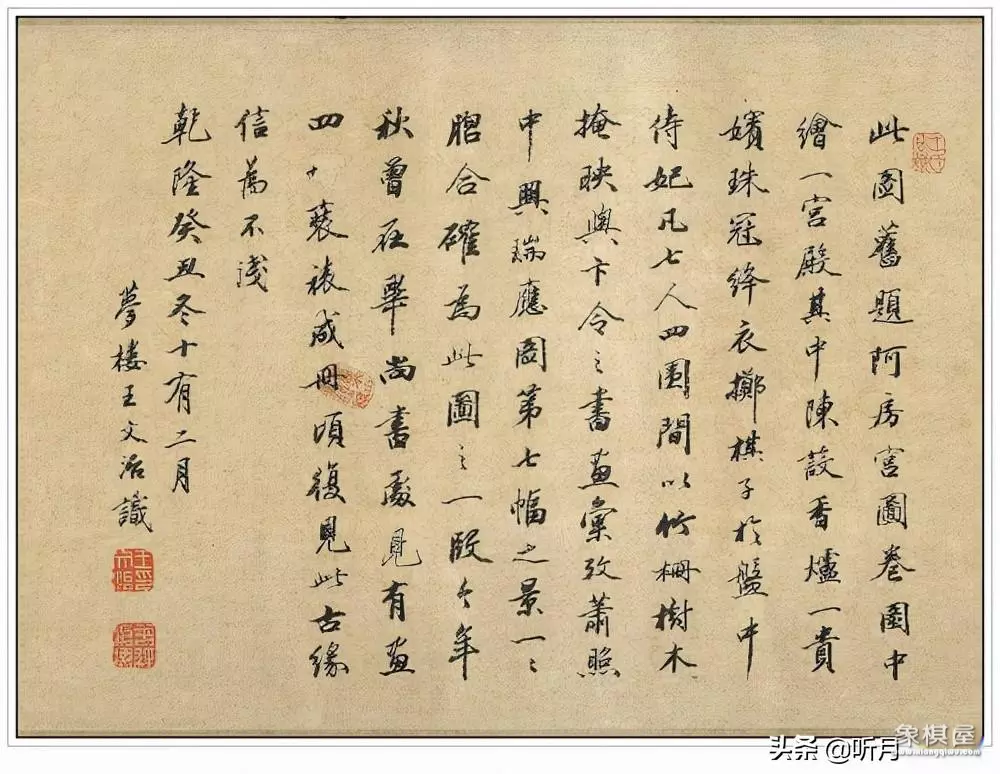 此圖舊題阿房宮圖卷圖中
繪一宮殿其中陳設香爐一貴
嬪珠冠絳衣擲棋子於盤中
侍妃凡七人四圍間以竹柵樹木
掩映與卞令之書畫彙攷蕭照
中興瑞應圖第七幅之景一〻
脗合確為此圖之一段今年
秋曾在畢尚書處見有畫
四十裝裱成冊頃復見此古緣
信為不淺
乾隆癸丑冬十有二月
夢樓王文治識
头条@听月
象棋屋
www.xiangqiwu.com